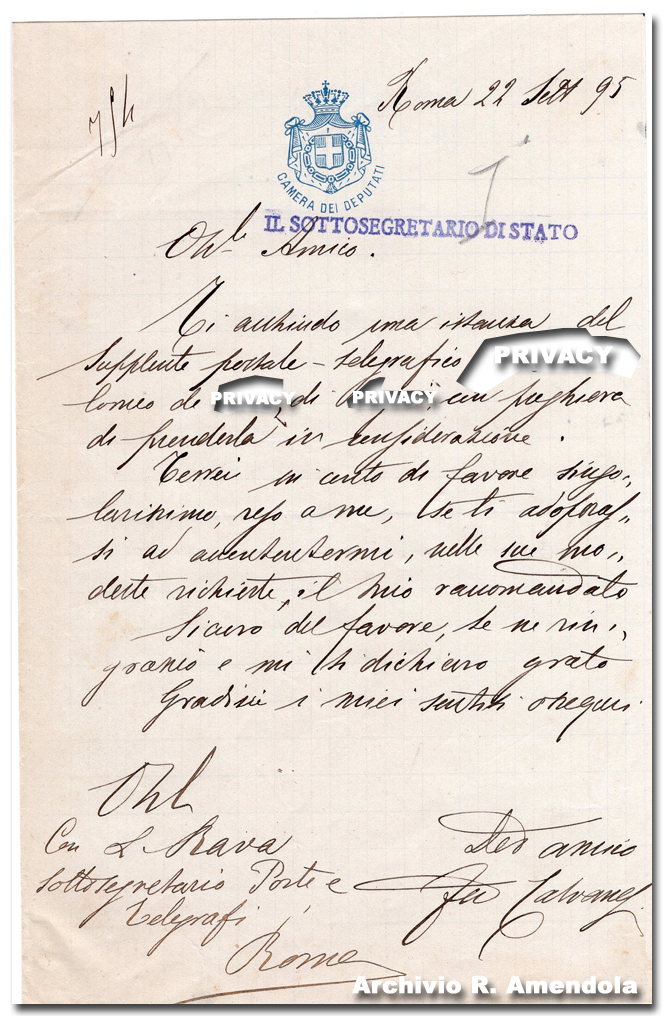 Roma 22 Sett 95
CAMERA DEI DEPUTATI
IL SOTTOSEGRETARIO DI STATO
On.le Amico.
Ti acchiudo una istanza del
supplente postale-telegrafico PRIVACY
lomeo de PRIVACY, di PRIVACY, con preghiera
di prenderla in considerazione.
Terrei in conto di favore singo-
larissimo, reso a me, se ti adopras-
si ad accontentarmi, nelle sue mo-
deste richieste, il mio raccomandato
Sicuro del favore, te ne rin-
grazio e mi ti dichiaro grato
Gradisci i miei sentiti ossequi
Onl
Com L Rava
Sottosegretario Poste e
Telegrafi
Roma
Dev amico
Archivio R. Amendola